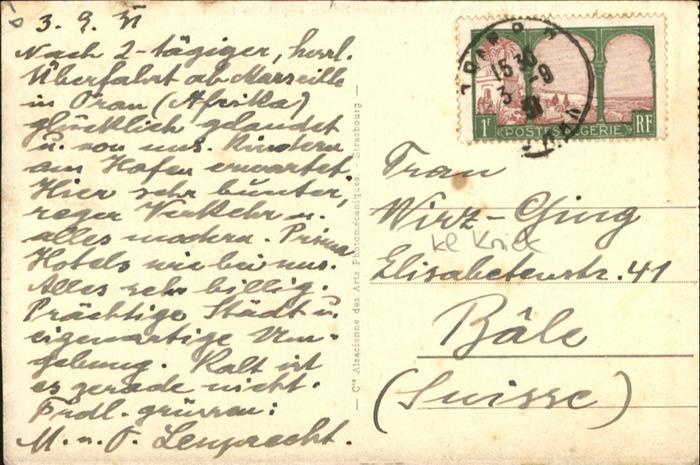 3. 9. 31
Nach 2-tägiger, herrl.
Überfahrt ab Marseille
in Oran (Afrika)
glücklich gelandet
u. von uns. Kindern
am Hafen erwartet.
Hier sehr bunter,
reger Verkehr u.
alles modern. Prima
Hotels wie bei uns.
Alles sehr billig.
Prächtige Stadt u.
eigenartige Um-
gebung. Kalt ist
es gerade nicht.
Frdl. grüssen:
M. u. O.
— Cie Alsacienne des Arts Photomécaniques - Strasbourg —
15 30
3 -9
31
1F POSTES ALGERIE RF
Frau
Wirz-Ging
Elisabetenstr. 41
Bâle
(Suisse)